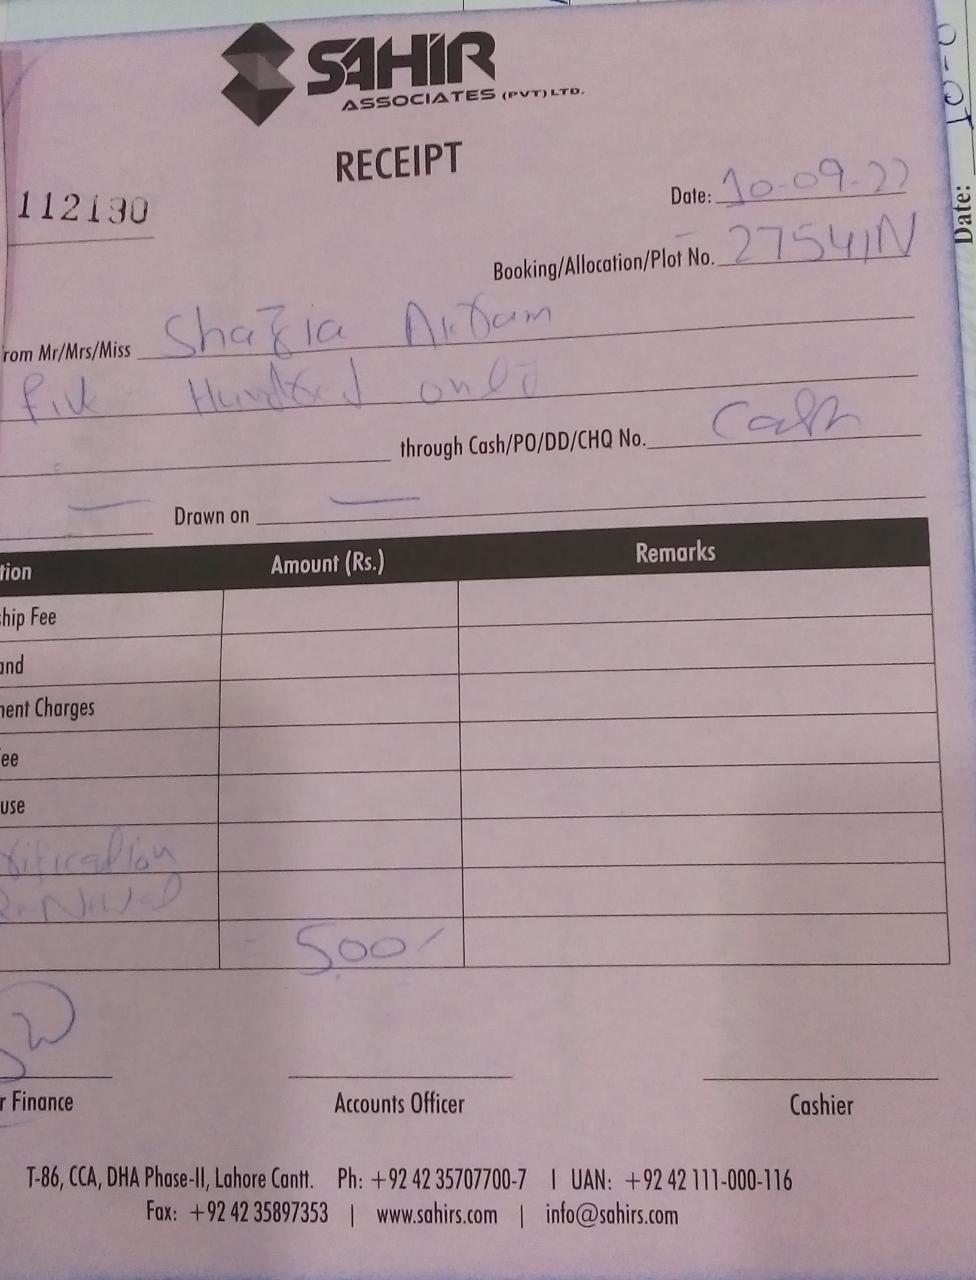 SAHIR
ASSOCIATES (PVT) LTD.
RECEIPT
112190
Date: 10-09-22
Booking/Allocation/Plot No. 2754/N
rom Mr/Mrs/Miss Shazia Akram
five Hundred only
through Cash/PO/DD/CHQ No. Cash
— Drawn on —
tion Amount (Rs.) Remarks
hip Fee
and
nent Charges
ee
use
ification
ReNewal
500/
r Finance Accounts Officer Cashier
T-86, CCA, DHA Phase-II, Lahore Cantt. Ph: +92 42 35707700-7 | UAN: +92 42 111-000-116
Fax: +92 42 35897353 | www.sahirs.com | info@sahirs.com
Date: